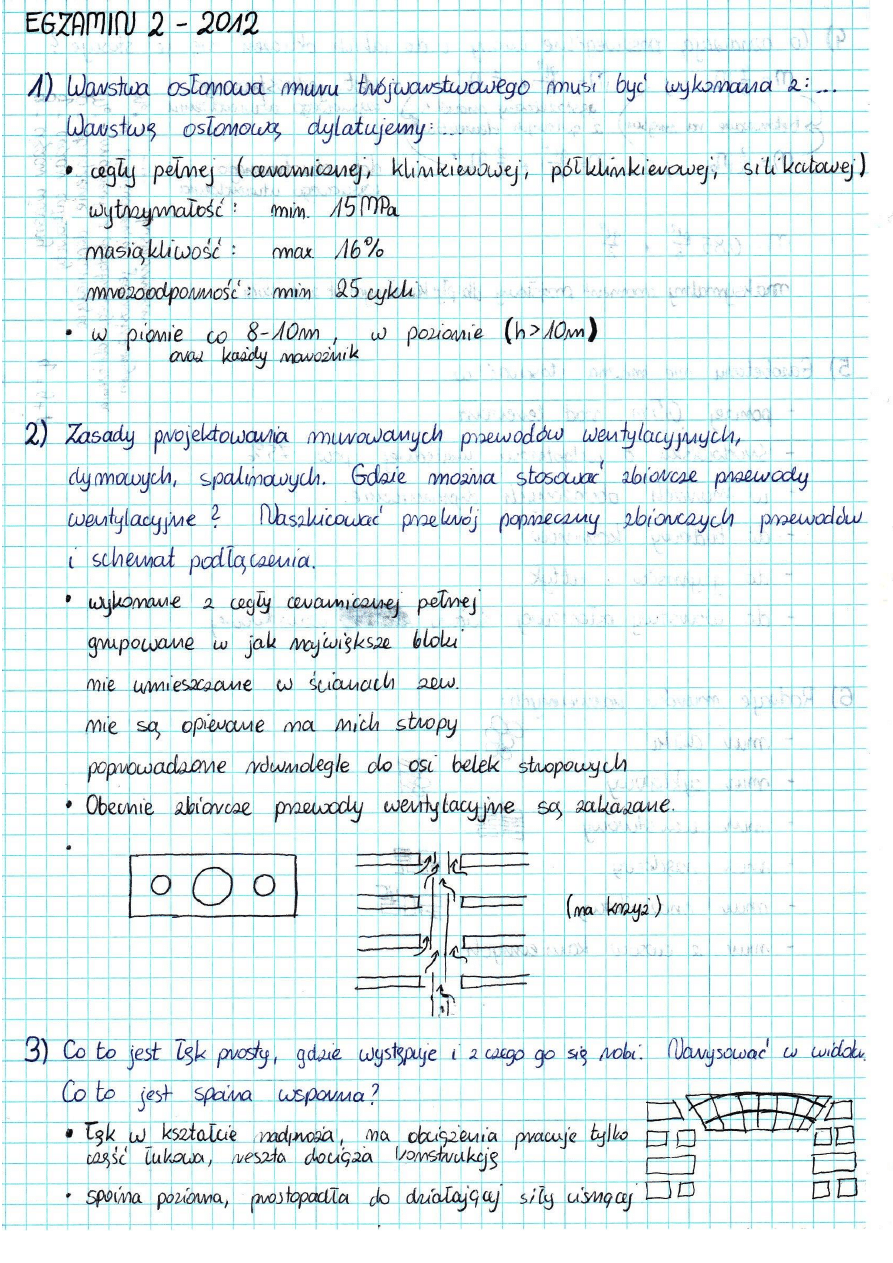 EGZAMIN 2 - 2012
1) Warstwa osłonowa muru trójwarstwowego musi być wykonana z: ...
Warstwę osłonową dylatujemy: ...
• cegły pełnej (ceramicznej, klinkierowej, półklinkierowej, silikatowej)
wytrzymałość: min. 15MPa
nasiąkliwość: max 16%
mrozoodporność: min 25 cykli
• w pionie co 8-10m, w poziomie (h>10m)
oraz każdy narożnik
2) Zasady projektowania murowanych przewodów wentylacyjnych,
dymowych, spalinowych. Gdzie można stosować zbiorcze przewody
wentylacyjne? Naszkicować przekrój poprzeczny zbiorczych przewodów
i schemat podłączenia.
• wykonane z cegły ceramicznej pełnej
grupowane w jak największe bloki
nie umieszczane w ścianach zew.
nie są opierane na nich stropy
poprowadzone równolegle do osi belek stropowych
• Obecnie zbiorcze przewody wentylacyjne są zakazane.
•
(na krzyż)
3) Co to jest łęk prosty, gdzie występuje i z czego go się robi. Narysować w widoku.
Co to jest spoina wsporna?
• łęk w kształcie nadproża, na obciążenia pracuje tylko
część łukowa, reszta dociąża konstrukcję
• spoina pozioma, prostopadła do działającej siły cisnącej